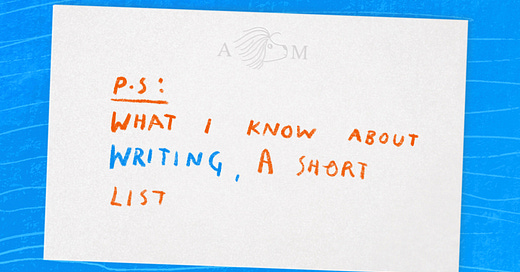 A M
P.S:
WHAT I KNOW ABOUT
WRITING, A SHORT
LIST